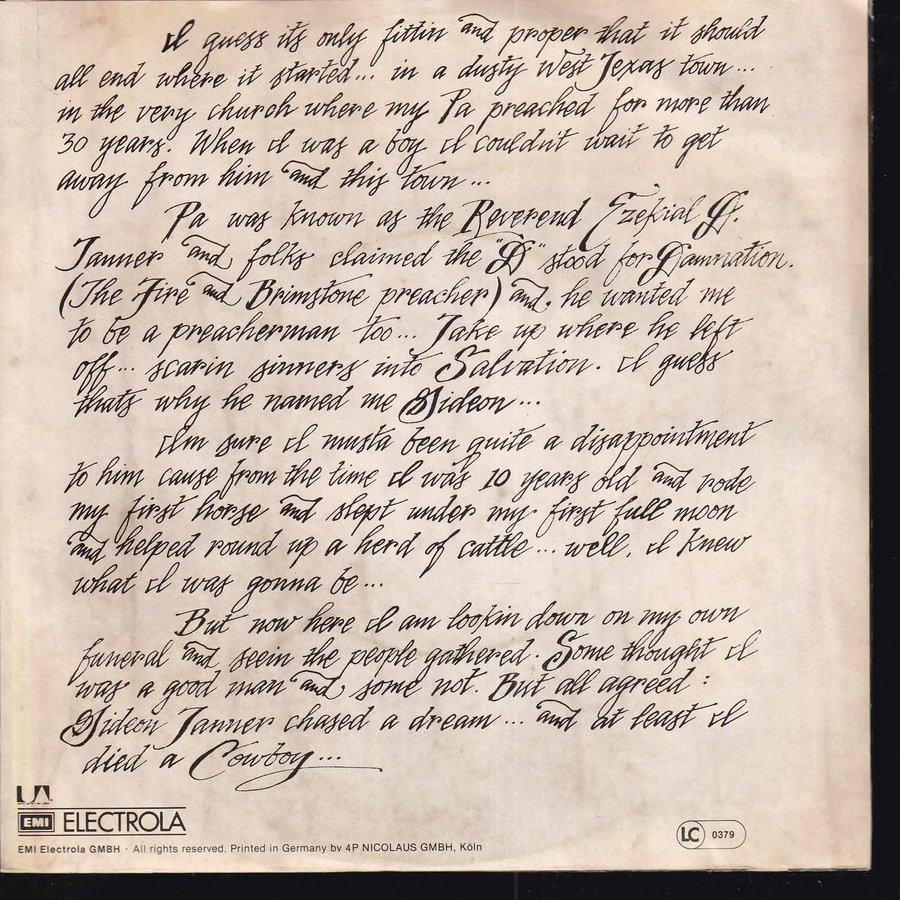 I guess its only fittin and proper that it should
all end where it started... in a dusty West Texas town...
in the very church where my Pa preached for more than
30 years. When I was a boy I couldnt wait to get
away from him and this town...
Pa was known as the Reverend Ezekial D.
Tanner and folks claimed the "D" stood for Damnation.
(The Fire and Brimstone preacher) and. he wanted me
to be a preacherman too... Take up where he left
off... scarin sinners into Salvation. I guess
thats why he named me Gideon...
Im sure I musta been quite a disappointment
to him cause from the time I was 10 years old and rode
my first horse and slept under my first full moon
and helped round up a herd of cattle... well, I knew
what I was gonna be...
But now here I am lookin down on my own
funeral and seein the people gathered. Some thought I
was a good man and some not. But all agreed:
Gideon Tanner chased a dream... and at least I
died a Cowboy...
UA
EMI ELECTROLA
EMI Electrola GMBH · All rights reserved. Printed in Germany by 4P NICOLAUS GMBH, Köln
LC 0379